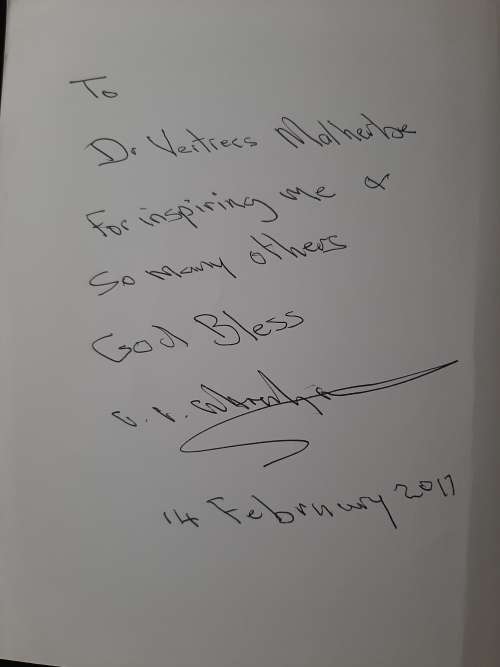 To
Dr Vertrees Malherbe
For inspiring me &
so many others
God Bless
14 February 2017